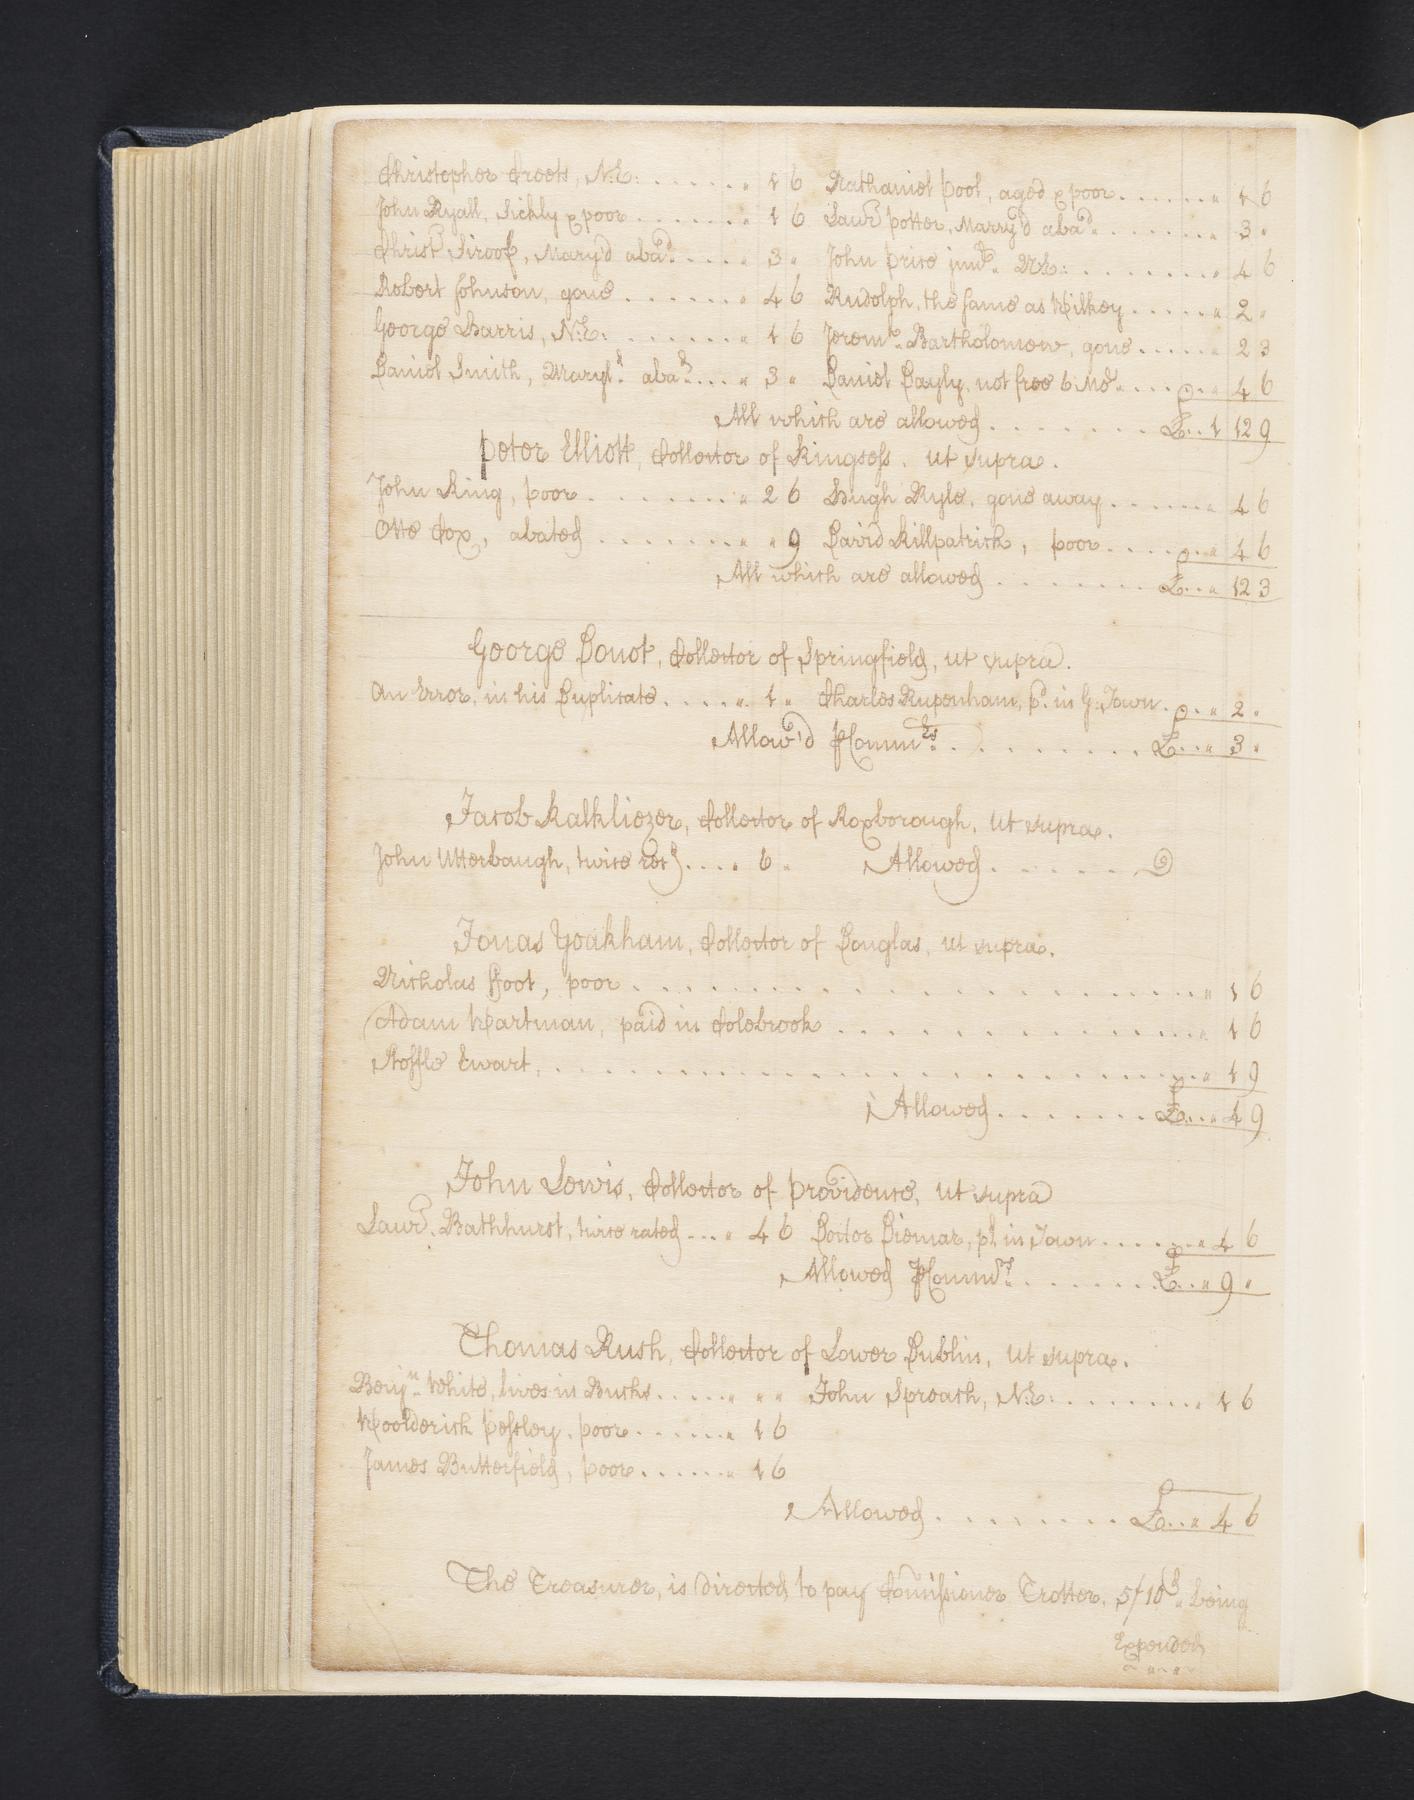 Christopher Croets, N.E: . . . . . . " 1 6 Nathaniel Pool, aged & poor . . . . . . " 1 6
John Ryall, Sickly & poor . . . . . . " 1 6 Lawr. Potter, Marry'd aba.d . . . . . . " 3 "
Christ.r Siroof, Mary'd aba.d . . . . " 3 " John Price jun.r N.E: . . . . . . " 4 6
Robert Johnson, gone . . . . . . " 4 6 Rudolph, the same as Wilkey . . . . . " 2 "
George Harris, N.E: . . . . . . " 1 6 Jerem.a Bartholomew, gone . . . . . " 2 3
Daniel Smith, Maryl.d aba.d . . . " 3 " Daniel Bayly, not free 6 Mo. . . . . " 4 6
All which are allowed . . . . . . . £ . . 1 12 9
Peter Elliott, Collector of Kingsess, ut supra.
John King, poor . . . . . . . " 2 6 Hugh Ryle, gone away . . . . . " 4 6
Otto Cox, abated . . . . . . . " " 9 David Killpatrick, poor . . . . . " 4 6
All which are allowed . . . . . . . £ . . " 12 3
George Bonot, Collector of Springfield, ut supra.
An Error, in his Duplicate . . . . . " 1 " Charles Rupenham, p.d in G: Town . . . " 2 "
Allow'd ⅌ Comm.rs . . . . . . . . £ . . " 3 "
Jacob Kalkliezer, Collector of Roxborough, ut supra.
John Utterbaugh, twice ret.d . . . . " 6 " Allowed . . . . . .
Jonas Yoakham, Collector of Douglas, ut supra.
Nicholas Foot, poor . . . . . . . . . . . . . . . . " 1 6
Adam Wartman, paid in Colebrook . . . . . . . . . . " 1 6
Stoffle Ewart, . . . . . . . . . . . . . . . . . . " 1 9
Allowed . . . . . . . £ . . " 4 9
John Lewis, Collector of Providence, ut supra
Lawr. Bathhurst, twice rated . . . " 4 6 Doctor Diemar, p.d in Town . . . . . " 4 6
Allowed ⅌ Comm.rs . . . . . . £ . . " 9 "
Thomas Rush, Collector of Lower Dublin, ut supra.
Benj.n White, lives in Bucks . . . . " " " John Sproach, N.E: . . . . . . . " 1 6
Woolderick Pessley, poor . . . . . . " 1 6
James Butterfield, poor . . . . . . " 1 6
Allowed . . . . . . . . £ . . " 4 6
The Treasurer, is directed to pay Comissioner Trotter, 5/10.d being
Expended